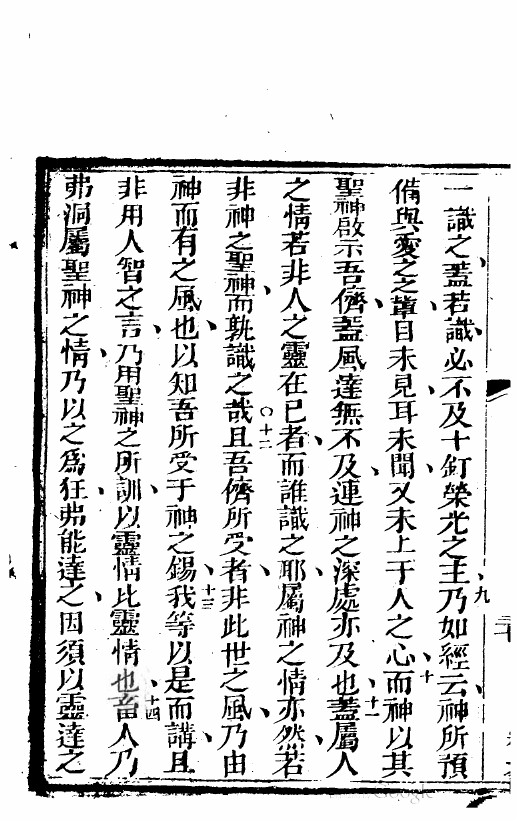 一識之蓋若識必不及十釘榮光之主九乃如經云神所預
備與愛之之輩目未見耳未聞又未上于人之心十而神以其
聖神啟示吾儕蓋風達無不及連神之深處亦及也十一蓋屬人
之情若非人之靈在己者而誰識之耶屬神之情亦然若
非神之聖神而孰識之哉○十二且吾儕所受者非此世之風乃由
神而有之風也以知吾所受于神之錫十三我等以是而講且
非用人智之言乃用聖神之所訓以靈情比靈情也十四畜人乃
弗洞屬聖神之情乃以之為狂弗能達之因須以靈達之